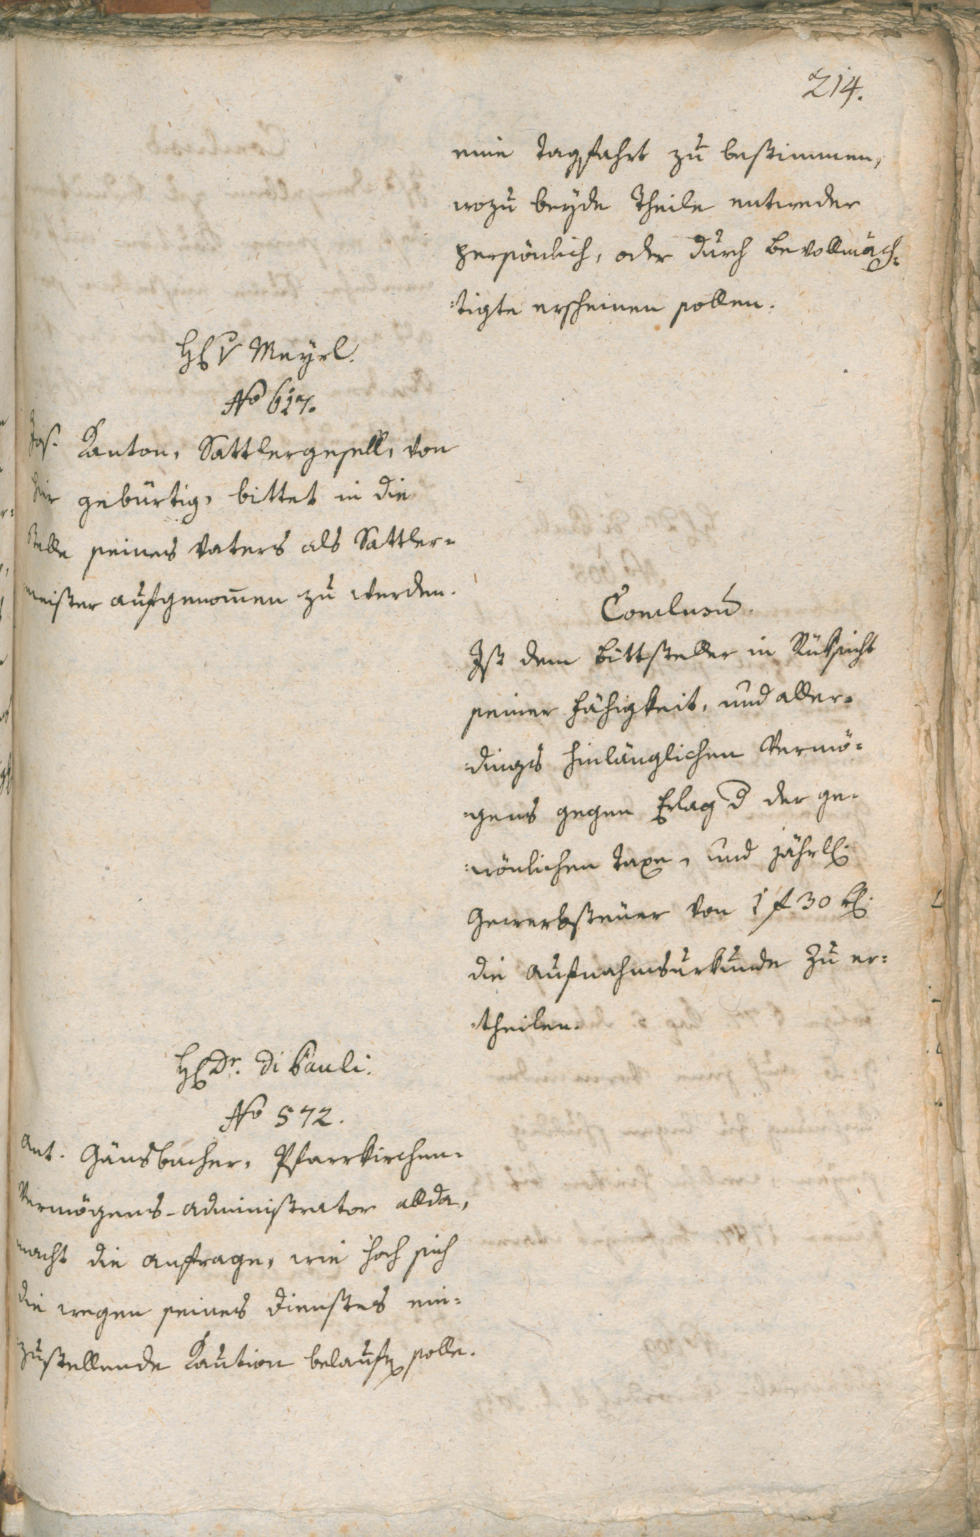 214.
eine Tagsfahrt zu bestimmen,
wozu beyde Theile entweder
persönlich, oder durch Bevollmäch-
tigte erscheinen sollen.
H. v Meyrl.
No 617.
Jos. Kanton, Sattlergesell, von
hier gebürtig, bittet in die
Stelle seines Vaters als Sattler-
meister aufgenommen zu werden.
Conclusum.
Ist dem Bittsteller in Rüksicht
seiner Fähigkeit, und aller-
dings hinlänglichen Vermö-
gens gegen Erlag der ge-
wönlichen Taxe, und jährl.
Gewerbsteuer von 1 f 30 kr.
die Aufnahmsurkunde zu er-
theilen.
H. Dr. di Pauli.
No 572.
Ant. Gänsbacher, Pfarrkirchen-
Vermögens-Administrator allda,
macht die Anfrage, wie hoch sich
die wegen seines Dienstes ein-
zustellende Kaution belaufen solle.